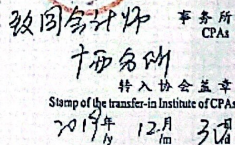 致同会计师 事务所
CPAs
广西分所
转入协会盖章
Stamp of the transfer-in Institute of CPAs
2019年 12月 3日
/y /m /d